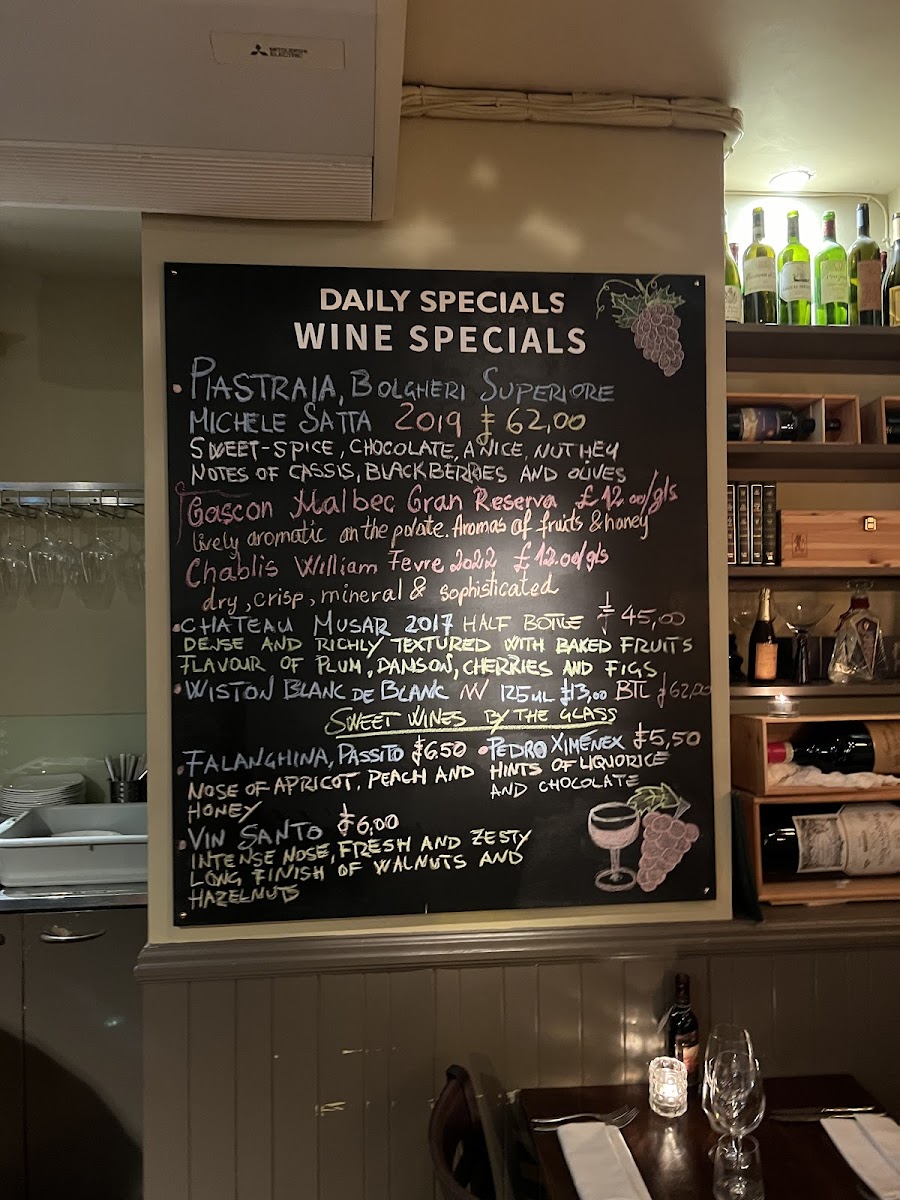 MITSUBISHI ELECTRIC
DAILY SPECIALS
WINE SPECIALS
• PIASTRAIA, BOLGHERI SUPERIORE
MICHELE SATTA 2019 £62,00
SWEET-SPICE, CHOCOLATE, ANICE, NUTHEY
NOTES OF CASSIS, BLACKBERRIES AND OLIVES
Gascon Malbec Gran Reserva £12.00/gls
lively aromatic on the palate. Aromas of fruits & honey
Chablis William Fevre 2022 £12.00/gls
dry, crisp, mineral & sophisticated
• CHATEAU MUSAR 2017 HALF BOTTLE £45,00
DENSE AND RICHLY TEXTURED WITH BAKED FRUITS
FLAVOUR OF PLUM, DAMSON, CHERRIES AND FIGS
• WISTON BLANC DE BLANC NV 125ML £13,00 BTL £62,00
SWEET WINES BY THE GLASS
• FALANGHINA, PASSITO £6.50
NOSE OF APRICOT, PEACH AND
HONEY
• PEDRO XIMÉNEX £5,50
HINTS OF LIQUORICE
AND CHOCOLATE
• VIN SANTO £6,00
INTENSE NOSE, FRESH AND ZESTY
LONG FINISH OF WALNUTS AND
HAZELNUTS